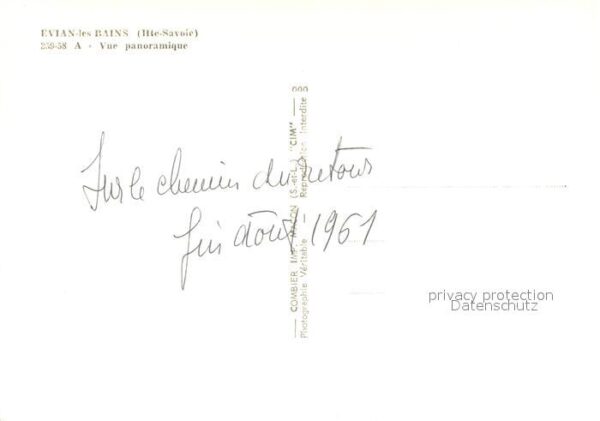 EVIAN-les BAINS (Hte-Savoie)
259-58 A - Vue panoramique
Sur le chemin du retour
fin août 1961
COMBIER IMP. MACON (S.-et-L.) "CIM"
Photographie Véritable - Reproduction Interdite
privacy protection
Datenschutz